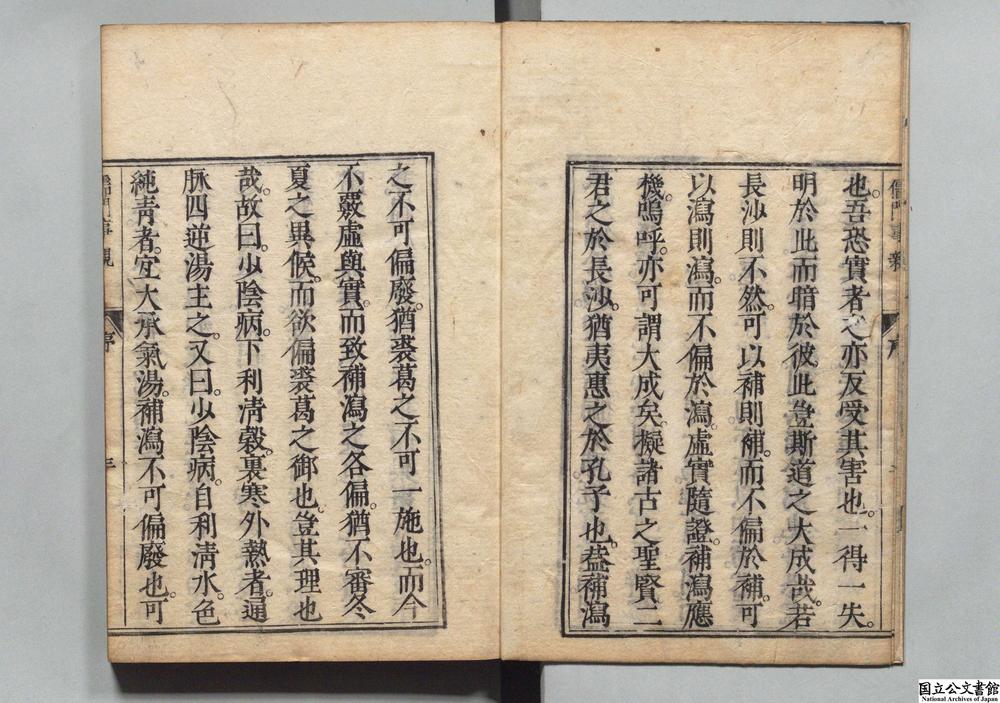 儒門事親
序
也。吾恐實者之亦反受其害也。一得一失。
明於此而暗於彼。此豈斯道之大成哉。若
長沙則不然。可以補則補。而不偏於補。可
以瀉則瀉。而不偏於瀉。虛實隨證。補瀉應
機。嗚呼。亦可謂大成矣。擬諸古之聖賢。二
君之於長沙。猶夷惠之於孔子也。葢補瀉
之不可偏廢。猶裘葛之不可一施也。而今
不覈虛與實。而致補瀉之各偏。猶不審冬
夏之異候。而欲偏裘葛之御也。豈其理也
哉。故曰。少陰病。下利淸穀。裏寒外熱者。通
脉四逆湯主之。又曰。少陰病。自利淸水。色
純靑者。宜大承氣湯。補瀉不可偏廢也。可
儒門事親
序
三
国立公文書館
National Archives of Japan